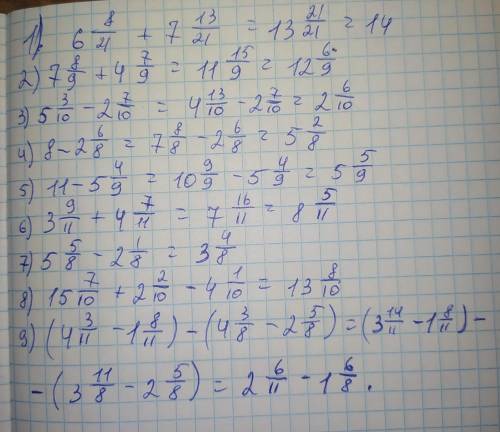 1) 6 8/21 + 7 13/21 = 13 21/21 = 14
2) 7 8/9 + 4 7/9 = 11 15/9 = 12 6/9
3) 5 3/10 - 2 7/10 = 4 13/10 - 2 7/10 = 2 6/10
4) 8 - 2 6/8 = 7 8/8 - 2 6/8 = 5 2/8
5) 11 - 5 4/9 = 10 9/9 - 5 4/9 = 5 5/9
6) 3 9/11 + 4 7/11 = 7 16/11 = 8 5/11
7) 5 5/8 - 2 1/8 = 3 4/8
8) 15 7/10 + 2 2/10 - 4 1/10 = 13 8/10
9) (4 3/11 - 1 8/11) - (4 3/8 - 2 5/8) = (3 14/11 - 1 8/11) -
- (3 11/8 - 2 5/8) = 2 6/11 - 1 6/8.